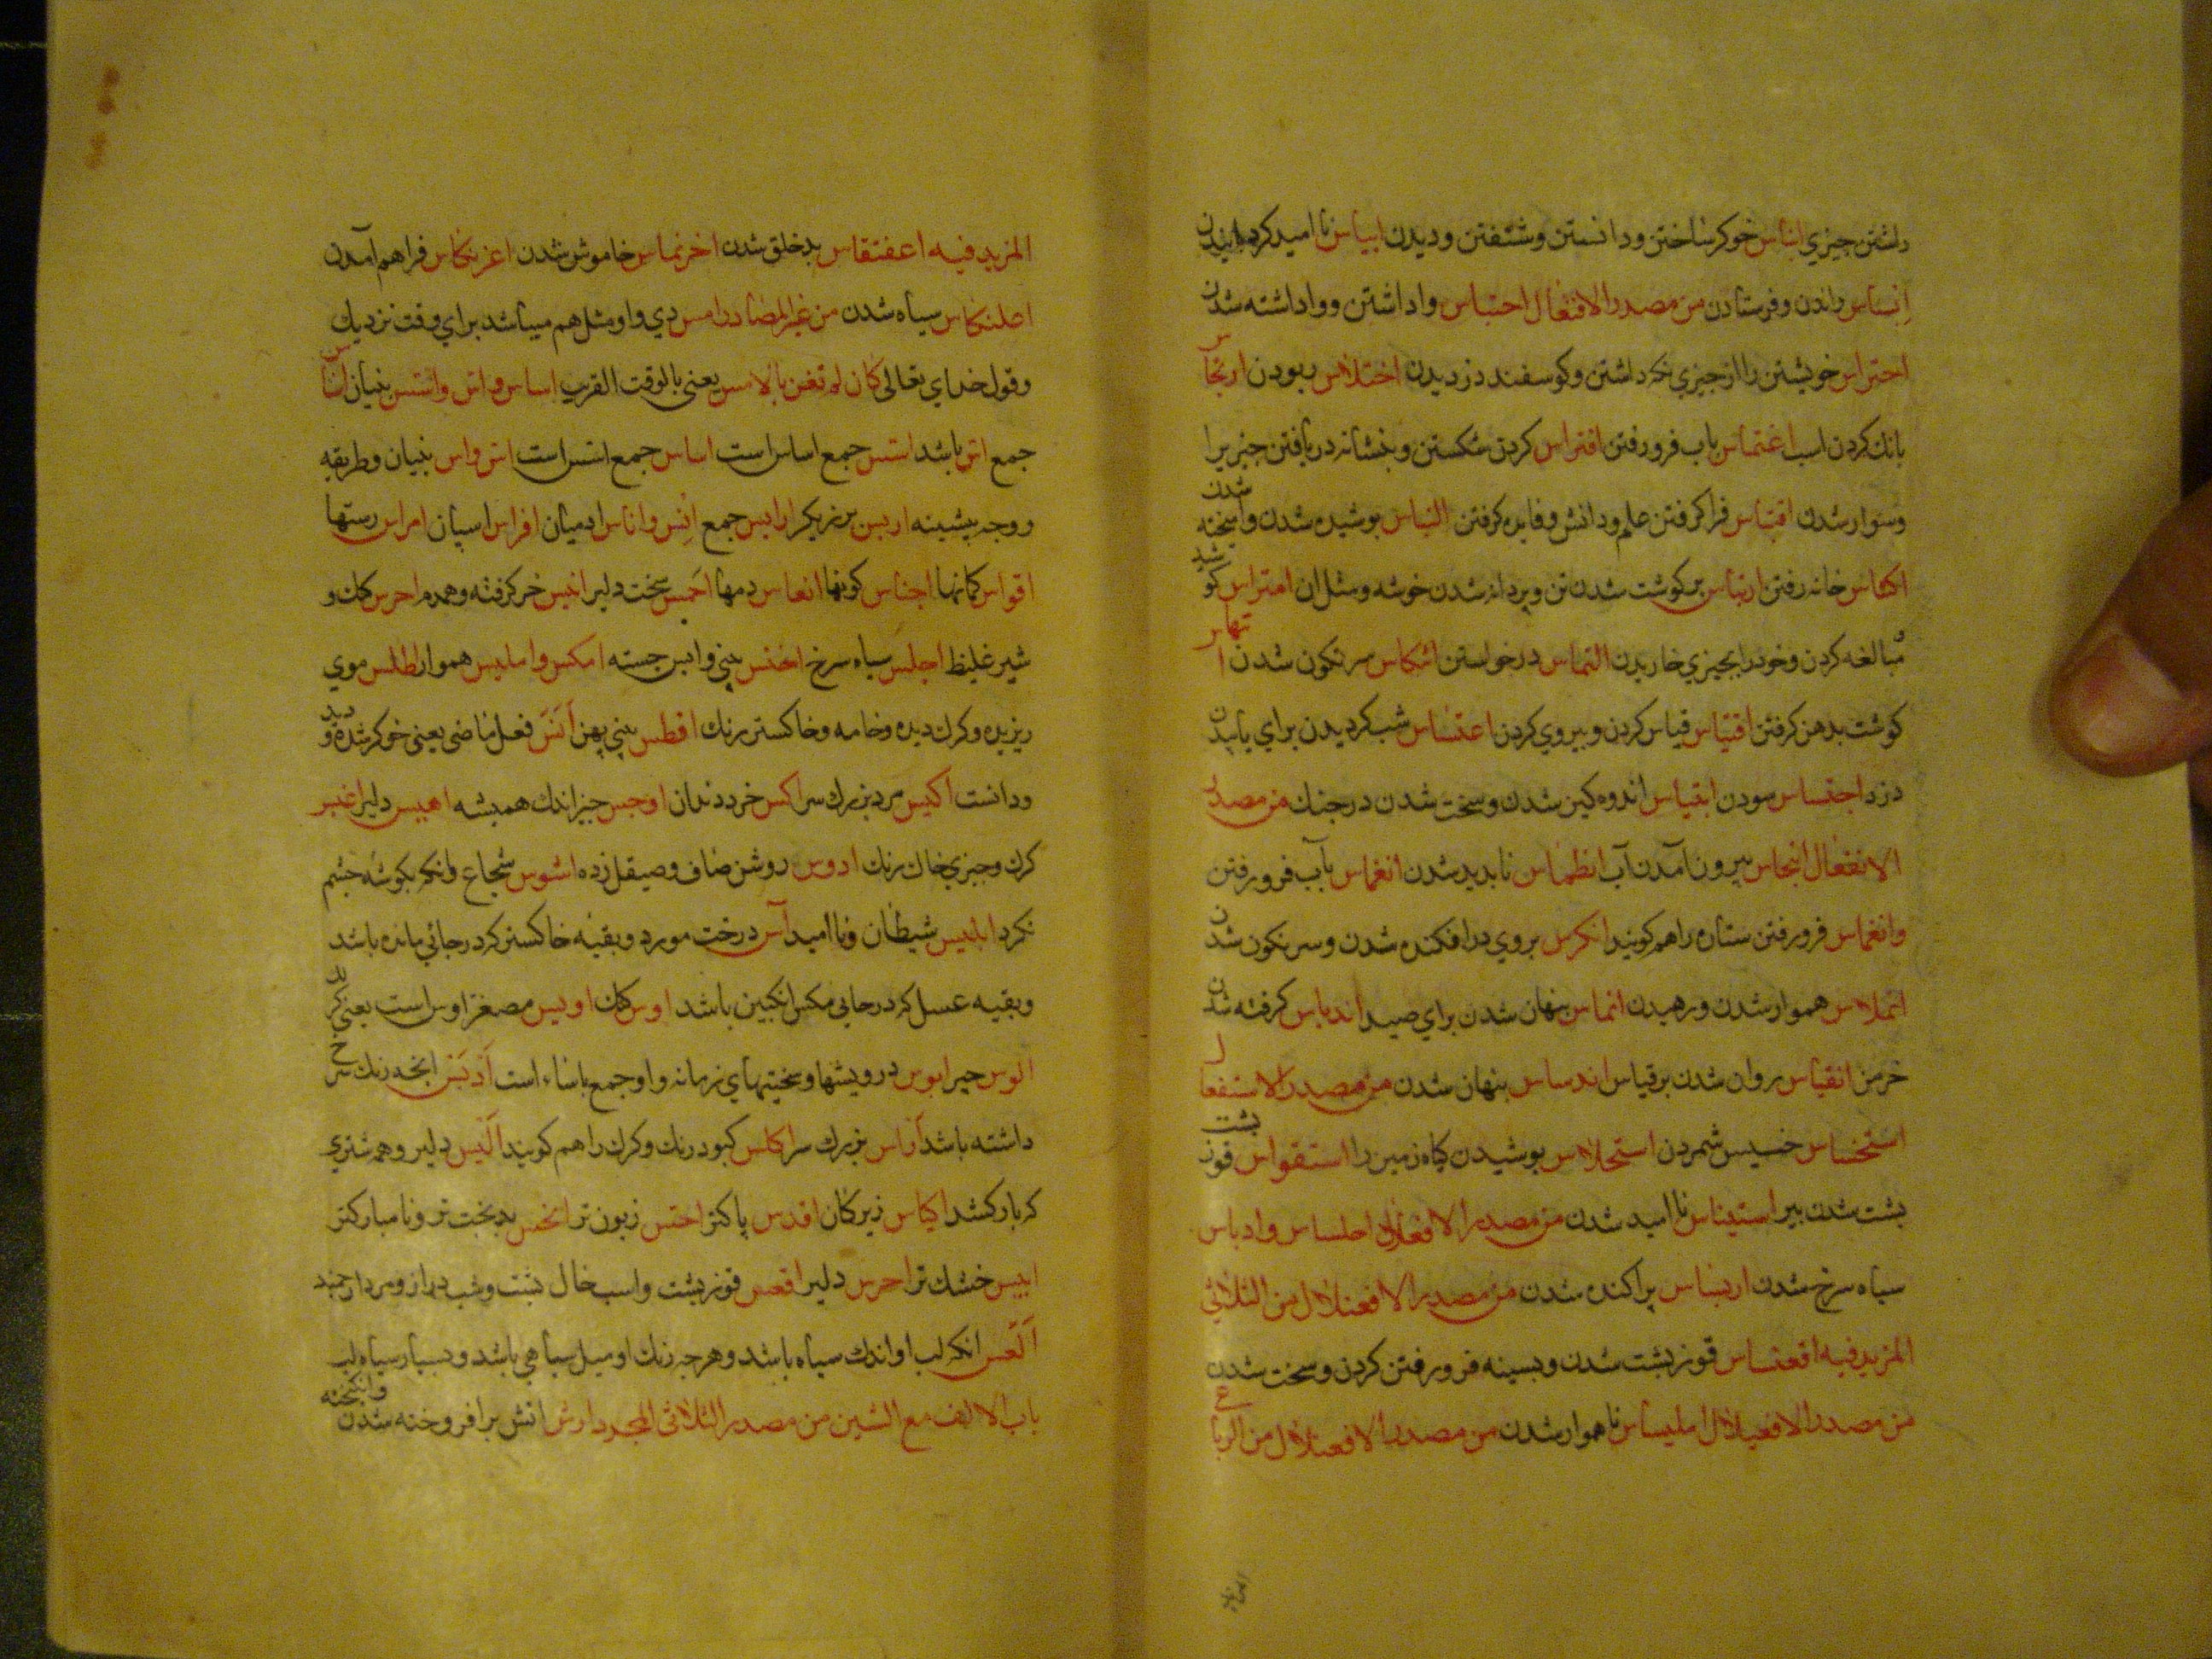 داشتن چیزی ایناس خوکر ساختن و دانستن و شنفتن و دیدن ایپاس نا امید کردانیدن
انساس راندن و فرستادن من مصدر الافتعال احتباس وا داشتن و وا داشته شدن
احتراس خویشتن را از چیزی نکه داشتن و کوسفند دزدیدن اختلاس ربودن ارتجاس
بانك کردن اسب اغتماس باب فرو رفتن افتراس کردن شکستن و بنشانه دریافتن چیزیرا
و سوار شدن اقتباس فرا کرفتن علم و دانش و فایده کرفتن التباس پوشیده شدن و آمیخته شدن
اکتناس خانه رفتن ارتباس پر کوشت شدن تن و پر دانه شدن خوشه و مثل ان امتراس کو شید
مبالغه کردن و خود را بچیزی خاریدن التماس درخواستن انتکاس سرنکون شدن انتهاس
کوشت بدهن کرفتن اقتیاس قیاس کردن و پیروی کردن اعتساس شب کردیدن برای یابیدن
دزد اجتساس سودن ابتیاس اندوه کین شدن و سخت شدن در جنك من مصدر
الانفعال انبجاس بیرون آمدن آب انطماس نابدید شدن انغماس بآب فرو رفتن
وانغماس فرو رفتن ستاره را هم کویند انکرس بروی در افکنده شدن و سرنکون شدن
انملاس هموار شدن و رهیدن انماس پنهان شدن برای صید اندیاس کرفته شدن
خرمن انقیاس روان شدن بر قیاس اندساس پنهان شدن من مصدر الاستفعال
استخساس خسیس شمردن استحلاس پوشیدن کیاه زمین را استقواس قوز پشت
پشت شدن پیر استیناس نا امید شدن من مصدر الافعلال احلساس و ادباس
سیاه سرخ شدن اربساس پراکنده شدن من مصدر الافعنلال من الثلاثی
المزید فیه اقعنساس قوز پشت شدن و بسینه فرو رفتن کردن و سخت شدن
من مصدر الافعیلال املیساس نا هموار شدن من مصدر الافعنلال من الرباع
المزید
المزید فیه اعفنقاس بد خلق شدن اخرنماس خاموش شدن اعرنکاس فراهم آمدن
اعلنکاس سیاه شدن من غیر المصادر امس دی و او مثل هم میباشد برای وقت نزدیك
و قول خدای تعالی کان لم تغن بالامس یعنی بالوقت القریب اساس و اس و اسس بنیان اساس
جمع اس باشد اسس جمع اساس است اساس جمع اسس است اس و اس بنیان و طریقه
و وجه پیشینه اریس برزیکر ارایس جمع انس و اناس ادمیان افراس اسپان امراس رستها
اقواس کمانها اجناس کونها انفاس دمها احمس سخت دلیر انیس خر کرفته و همدم احرس کك و
شیر غلیظ اجلس سیاه سرخ اخنس بینی واپس جسته امکس و املیس هموار اطلس موی
ریزیده و کرك دیده و خامه و خاکستر رنك افطس بینی پهن انس فعل ماضی یعنی خوکر شده و دید
و دانست اکیس مرد بزرك سر اکس خرد دندان اوجس چیز اندك همیشه اهیس دلیر اغبس
کرك و چیزی خاك رنك ادوس روشن صاف و صیقل زده اشوس شجاع و انکه بکوشه چشم
نکرد ابلیس شیطان و نا امید آس درخت مورد و بقیه خاکستر که در جائی مانده باشد
و بقیه عسل که در جایی مکس انکبین باشد اوس کك اویس مصغر اوس است یعنی کرك
الوس چیر ابوس درویشها و سختیهای زمانه و او جمع باساء است ادبس انچه رنك سرخ
داشته باشد آراس بزرك سر اکلس کبود رنك و کرك را هم کویند الیس دلیر و هم شتری
که بار کشد اکیاس زیرکان اقدس پاکتر اخس زبون تر انحس بدبخت تر و نا مبارکتر
ایبس خشك تر احرس دلیر اقعس قوز پشت و اسب خال پشت و شب دراز و مرد ارجمند
العس انکه لب او اندك سیاه باشد و هر چه رنك او میل سیاهی باشد و بسیار سیاه لب
باب الالف مع الشین من مصدر الثلاثی المجرد ارش اتش بر افروخته شدن و انکیخته